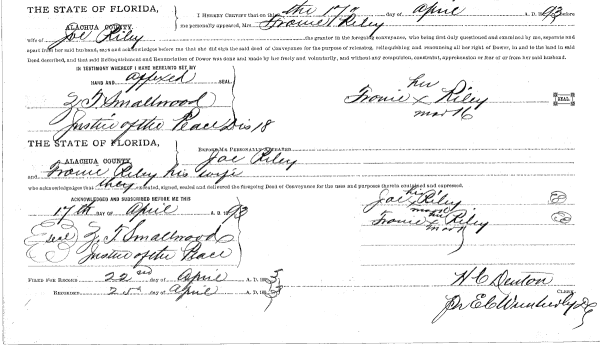 THE STATE OF FLORIDA,
ALACHUA COUNTY.
I HEREBY CERTIFY that on this the 17th day of April A. D. 93 before
me personally appeared, Mrs Fronie Riley
wife of Joe Riley the grantor in the foregoing conveyance, who being first duly questioned and examined by me, separate and
apart from her said husband, says and acknowledges before me that she did sign the said deed of Conveyance for the purpose of releasing, relinquishing and renouncing all her right of Dower, in and to the land in said
Deed described, and that said Relinquishment and Renunciation of Dower was done and made by her freely and voluntarily, and without any compulsion, constraint, apprehension or fear of or from her said husband.
IN TESTIMONY WHEREOF I HAVE HEREUNTO SET MY
HAND AND affixed SEAL
Z T Smallwood
Justice of the Peace Dis 18
her
Fronie x Riley
mark
SEAL
THE STATE OF FLORIDA,
ALACHUA COUNTY.
BEFORE ME PERSONALLY APPEARED Joe Riley
and Fronie Riley his wife
who acknowledges that they executed, signed, sealed and delivered the foregoing Deed of Conveyance for the uses and purposes therein contained and expressed.
ACKNOWLEDGED AND SUBSCRIBED BEFORE ME THIS
17th DAY OF April A. D. 1893
Seal Z T Smallwood
Justice of the Peace
his
Joe x Riley
mark
her
Fronie x Riley
mark
FILED FOR RECORD 22nd day of April A. D. 1893
RECORDED 25th day of April A. D. 1893
H C Denton
CLERK.
Pr E C Wimberly DC